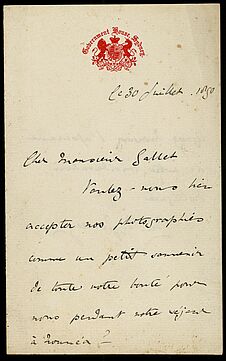 Government House, Sydney.
le 30 Juillet. 1890
Cher Monsieur Gallet
Voulez-vous bien
accepter nos photographies
comme un petit souvenir
de toute votre bonté pour
nous pendant notre séjour
à Nouméa?